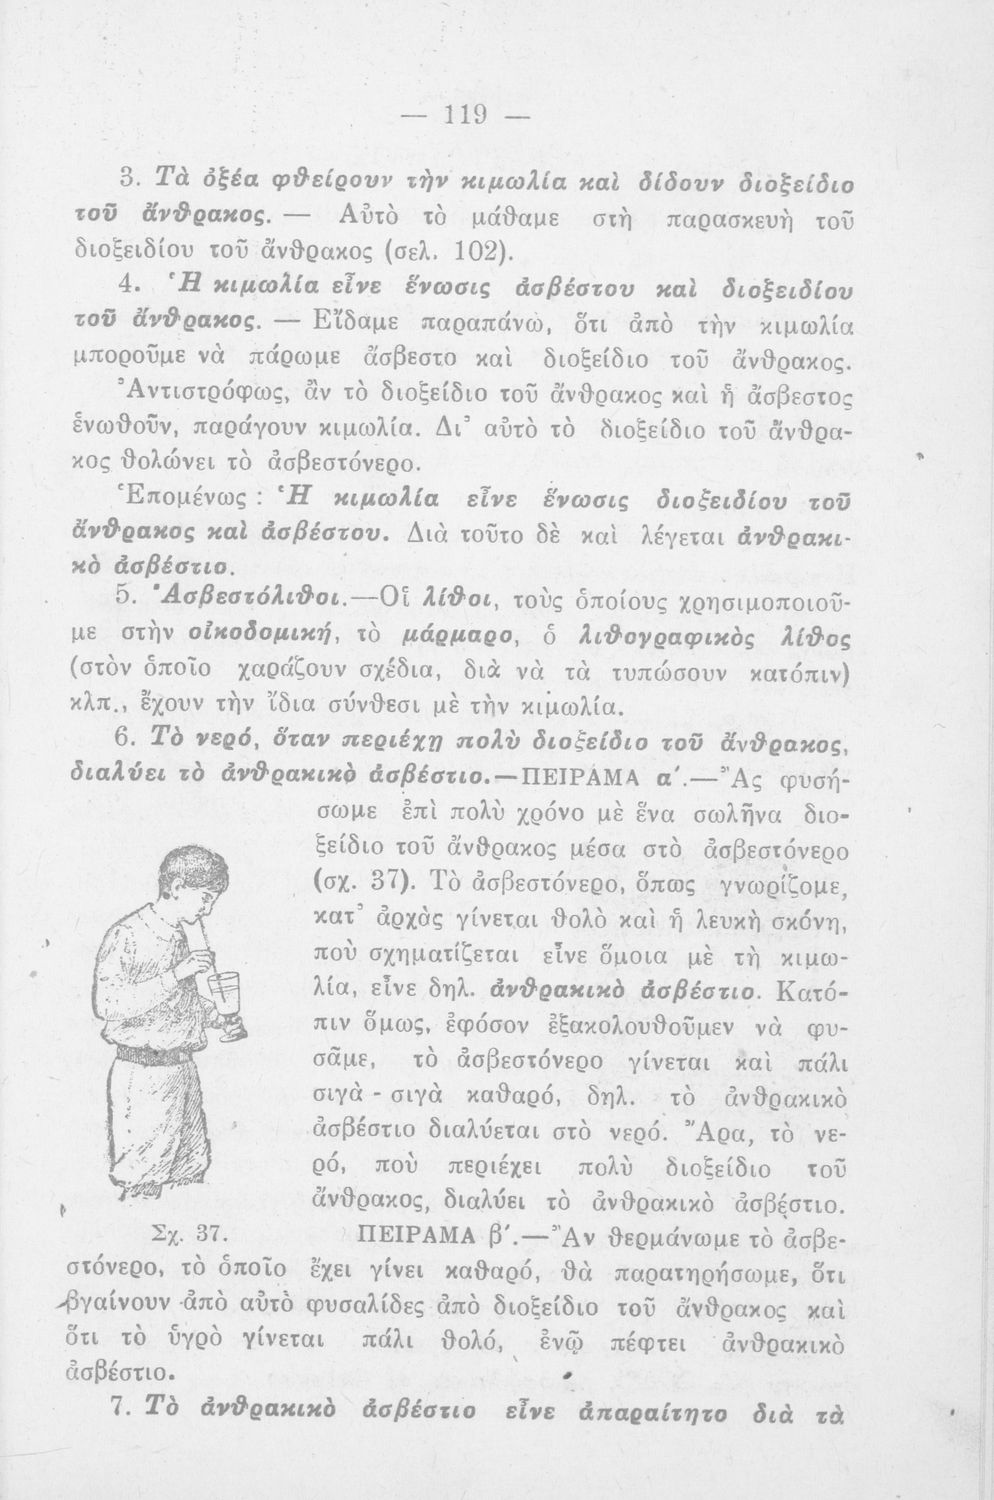 — 119 —
3. Τὰ ὀξέα φθείρουν τὴν κιμωλία καὶ δίδουν διοξείδιο
τοῦ ἄνθρακος. — Αὐτὸ τὸ μάθαμε στὴ παρασκευὴ τοῦ
διοξειδίου τοῦ ἄνθρακος (σελ. 102).
4. Ἡ κιμωλία εἶνε ἕνωσις ἀσβέστου καὶ διοξειδίου
τοῦ ἄνθρακος. — Εἴδαμε παραπάνω, ὅτι ἀπὸ τὴν κιμωλία
μποροῦμε νὰ πάρωμε ἄσβεστο καὶ διοξείδιο τοῦ ἄνθρακος.
Ἀντιστρόφως, ἂν τὸ διοξείδιο τοῦ ἄνθρακος καὶ ἡ ἄσβεστος
ἑνωθοῦν, παράγουν κιμωλία. Δι᾽ αὐτὸ τὸ διοξείδιο τοῦ ἄνθρα-
κος θολώνει τὸ ἀσβεστόνερο.
Ἑπομένως : Ἡ κιμωλία εἶνε ἕνωσις διοξειδίου τοῦ
ἄνθρακος καὶ ἀσβέστου. Διὰ τοῦτο δὲ καὶ λέγεται ἀνθρακι-
κὸ ἀσβέστιο.
5. Ἀσβεστόλιθοι.—Οἱ λίθοι, τοὺς ὁποίους χρησιμοποιοῦ-
με στὴν οἰκοδομική, τὸ μάρμαρο, ὁ λιθογραφικὸς λίθος
(στὸν ὁποῖο χαράζουν σχέδια, διὰ νὰ τὰ τυπώσουν κατόπιν)
κλπ., ἔχουν τὴν ἴδια σύνθεσι μὲ τὴν κιμωλία.
6. Τὸ νερό, ὅταν περιέχῃ πολὺ διοξείδιο τοῦ ἄνθρακος,
διαλύει τὸ ἀνθρακικὸ ἀσβέστιο.—ΠΕΙΡΑΜΑ α΄.—Ἂς φυσή-
σωμε ἐπὶ πολὺ χρόνο μὲ ἕνα σωλῆνα διο-
ξείδιο τοῦ ἄνθρακος μέσα στὸ ἀσβεστόνερο
(σχ. 37). Τὸ ἀσβεστόνερο, ὅπως γνωρίζομε,
κατ᾽ ἀρχὰς γίνεται θολὸ καὶ ἡ λευκὴ σκόνη,
ποὺ σχηματίζεται εἶνε ὅμοια μὲ τὴ κιμω-
λία, εἶνε δηλ. ἀνθρακικὸ ἀσβέστιο. Κατό-
πιν ὅμως, ἐφόσον ἐξακολουθοῦμεν νὰ φυ-
σᾶμε, τὸ ἀσβεστόνερο γίνεται καὶ πάλι
σιγὰ - σιγὰ καθαρό, δηλ. τὸ ἀνθρακικὸ
ἀσβέστιο διαλύεται στὸ νερό. Ἄρα, τὸ νε-
ρό, ποὺ περιέχει πολὺ διοξείδιο τοῦ
ἄνθρακος, διαλύει τὸ ἀνθρακικὸ ἀσβέστιο.
Σχ. 37.
ΠΕΙΡΑΜΑ β΄.—Ἂν θερμάνωμε τὸ ἀσβε-
στόνερο, τὸ ὁποῖο ἔχει γίνει καθαρό, θὰ παρατηρήσωμε, ὅτι
βγαίνουν ἀπὸ αὐτὸ φυσαλίδες ἀπὸ διοξείδιο τοῦ ἄνθρακος καὶ
ὅτι τὸ ὑγρὸ γίνεται πάλι θολό, ἐνῷ πέφτει ἀνθρακικὸ
ἀσβέστιο.
7. Τὸ ἀνθρακικὸ ἀσβέστιο εἶνε ἀπαραίτητο διὰ τὰ